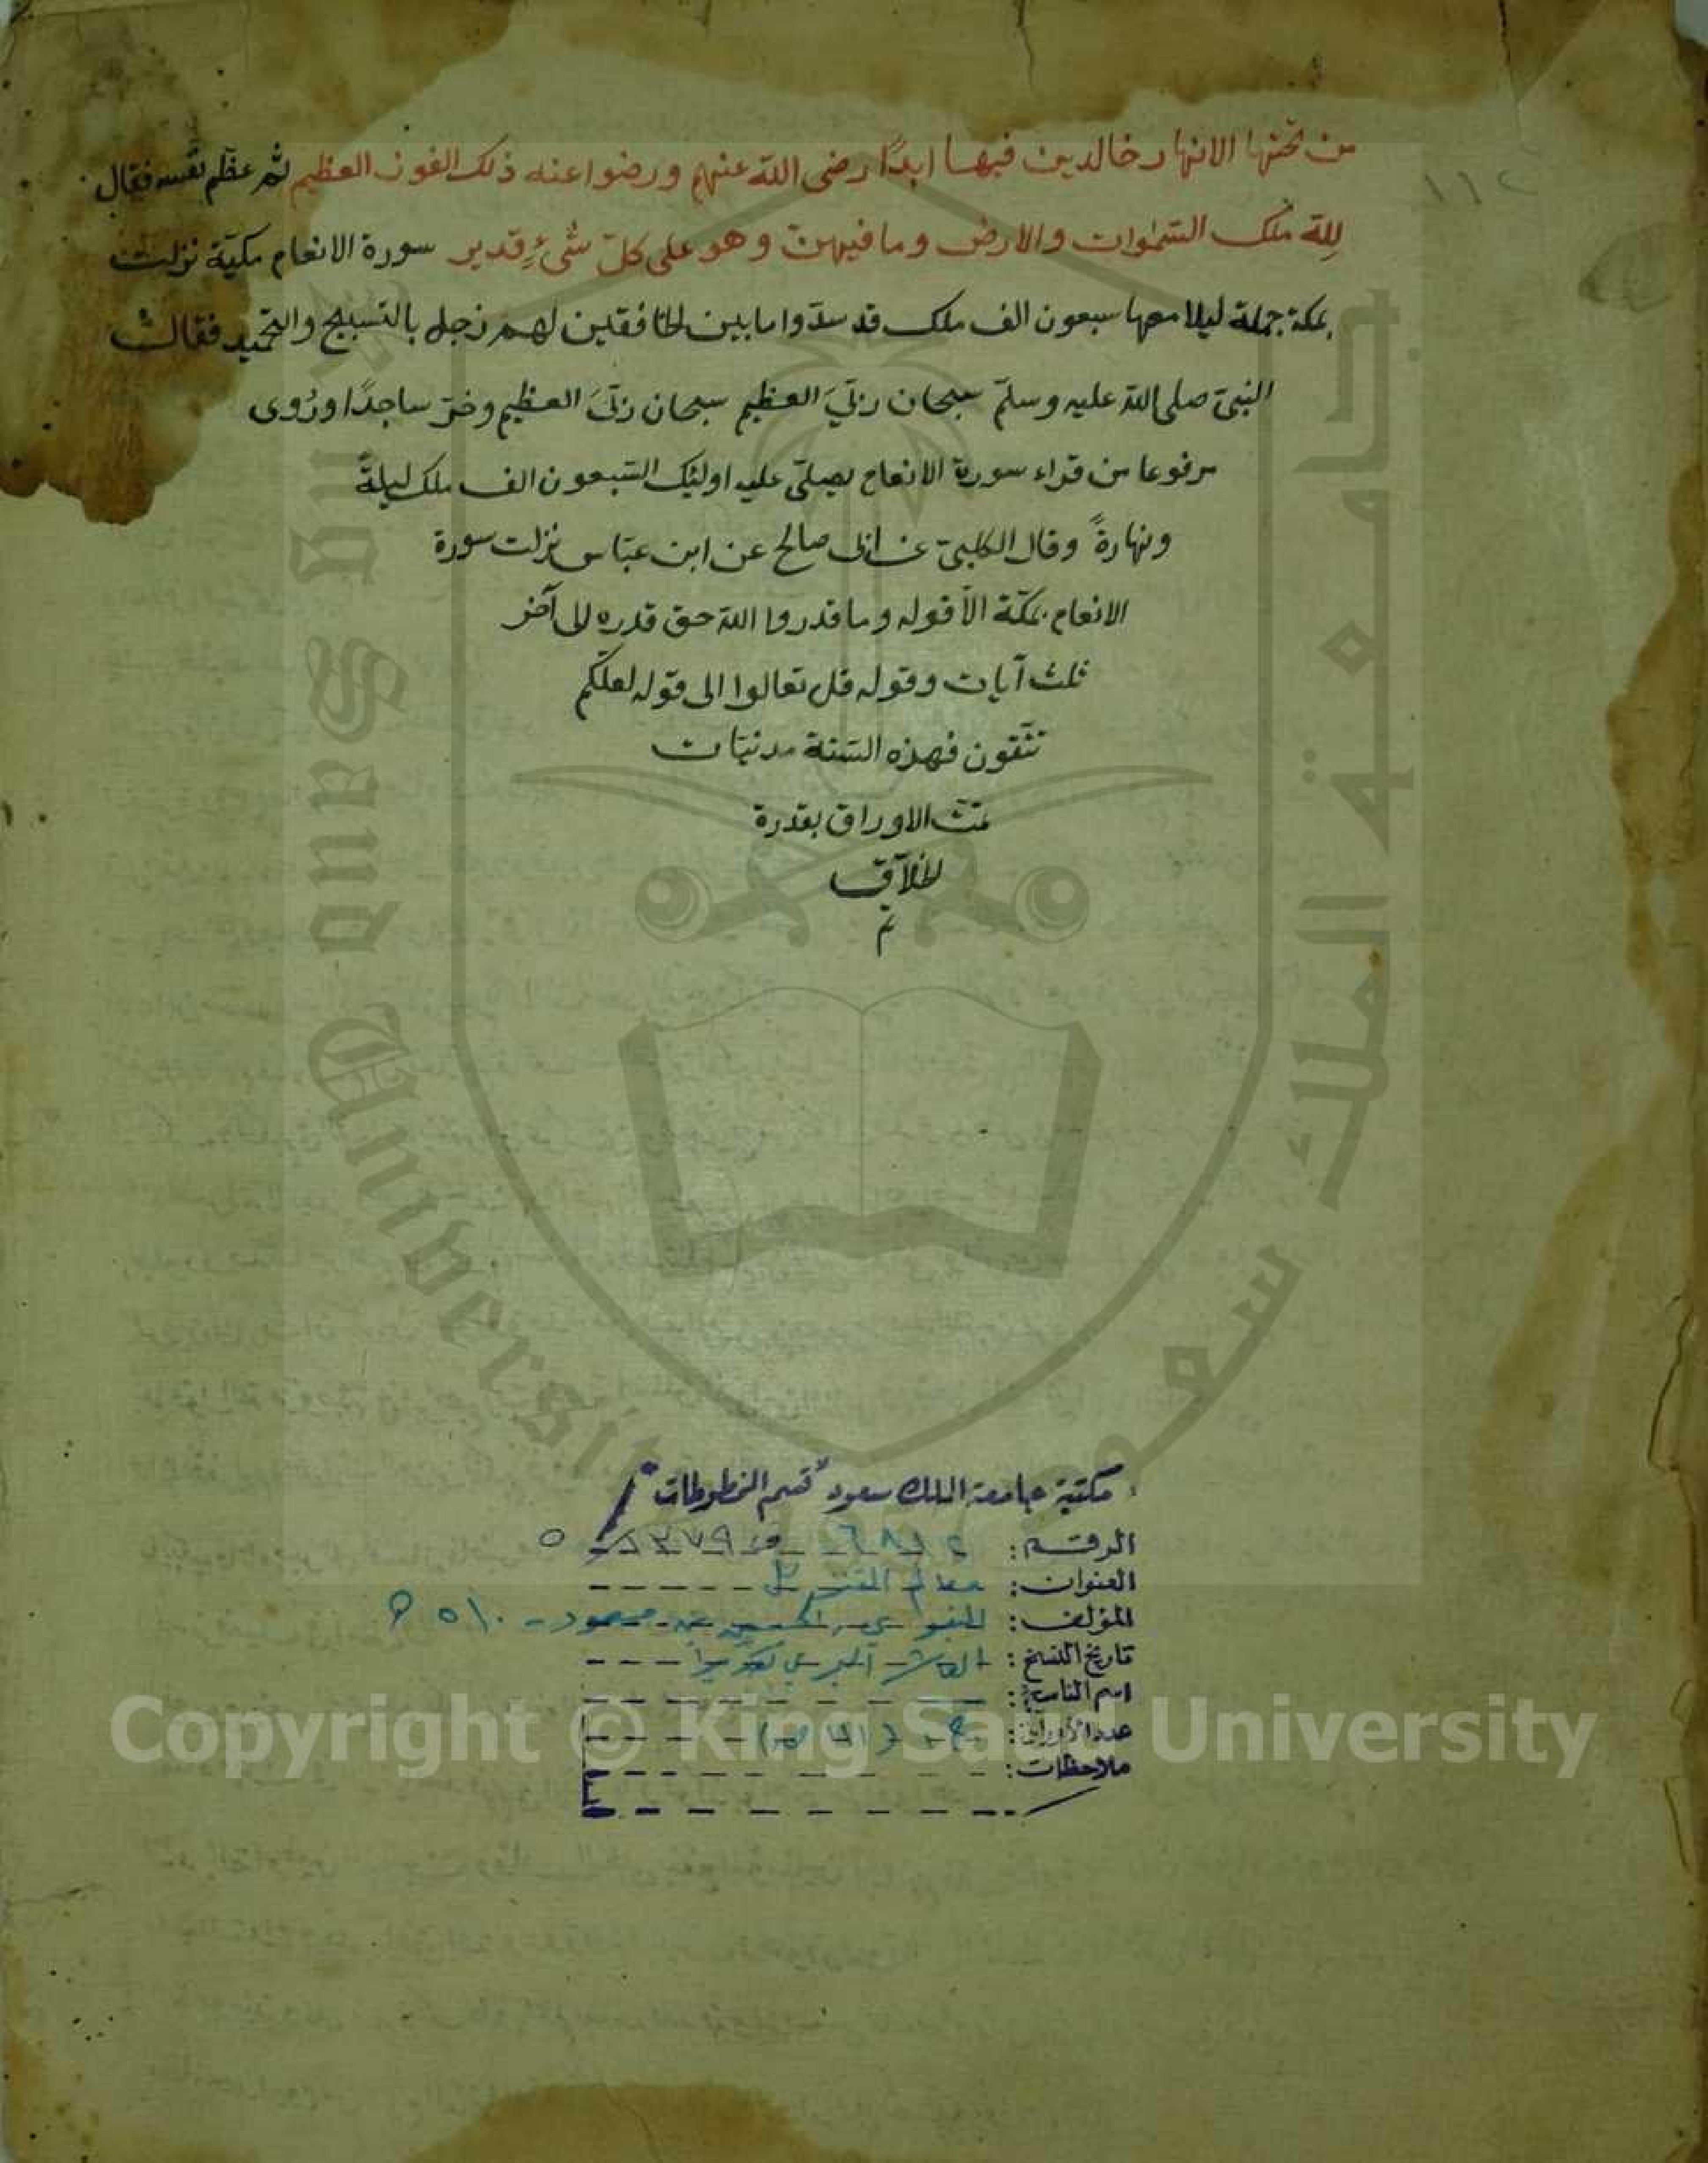 من تحتها الانهار خالدين فيها ابدًا رضى الله عنهم ورضوا عنه ذلك الفوز العظيم ثم عظّم نفسه فقال
لله ملك السمٰوات والارض وما فيهن وهو على كلّ شىءٍ قدير سورة الانعام مكيّة نزلت
بمكة جملة ليلا معها سبعون الف ملك قد سدّوا ما بين الخافقين لهم زجل بالتسبيح والتحميد فقال
النبىّ صلى الله عليه وسلّم سبحان ربّىَ العظيم سبحان ربّىَ العظيم وخرّ ساجدًا ورُوى
مرفوعا من قراء سورة الانعام يصلّى عليه اولئك السّبعون الف ملك ليلةً
ونهارةً وقال الكلبىّ عن ابى صالح عن ابن عبّاس نزلت سورة
الانعام بمكّة الّا قوله وما قدروا الله حق قدره الى آخر
ثلث آيات وقوله قل تعالوا الى قوله لعلّكم
تتّقون فهذه الستة مدنيّات
تمّت الاوراق بقدرة
الخلّاق
تم
مكتبة جامعة الملك سعود "قسم المخطوطات"
الرقم:
العنوان: معالم التنزيل
المؤلف: للبغوي، الحسين بن مسعود - ٥١٠ هـ
تاريخ النسخ: العاشر الهجري تقديرا
اسم الناسخ:
عدد الأوراق:
ملاحظات:
جامعة الملك سعود
King Saud University
Copyright © King Saud University